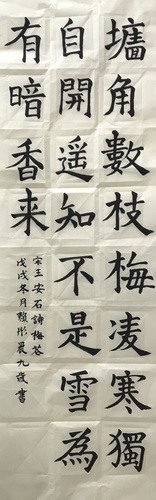 墻角數枝梅凌寒獨
自開遥知不是雪為
有暗香来
宋王安石詩梅花
戊戌冬月彤晨九歲書